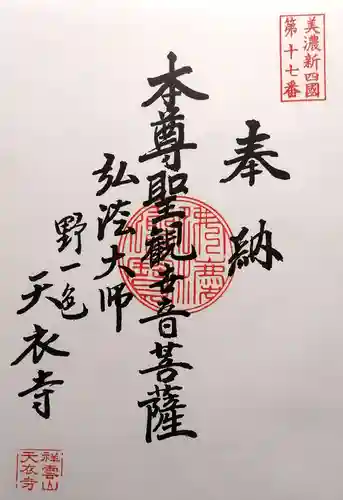 美濃新四國
第十七番
奉納
本尊聖觀世音菩薩
弘法大師
野一色
天衣寺
祥雲山
天衣寺